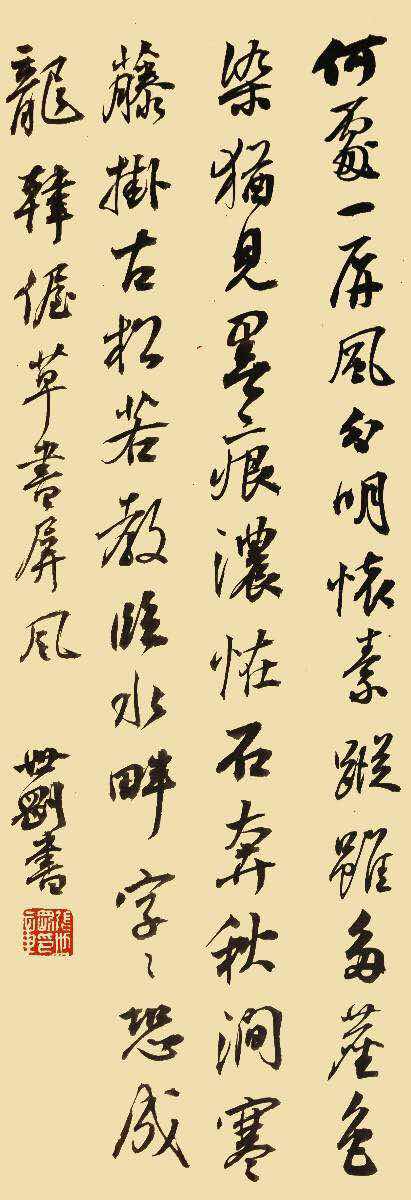 何處一屏風分明懷素蹤雖多塵色
染猶見墨痕濃恠石奔秋澗寒
藤掛古松若教臨水畔字〻恐成
龍韓偓草書屏風
世剛書